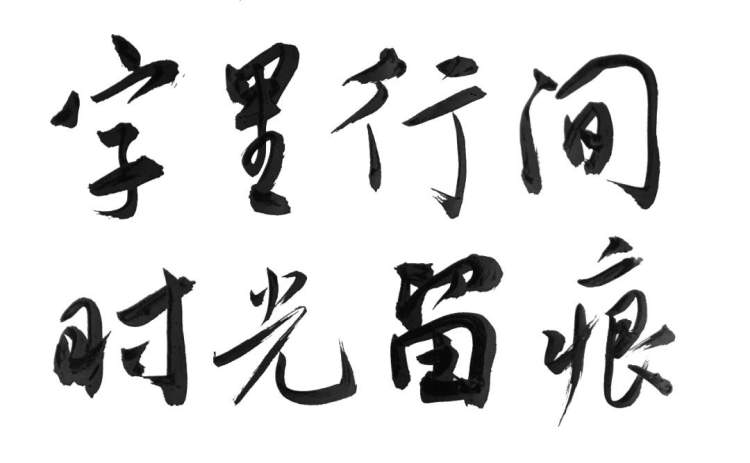 字里行间
时光留痕